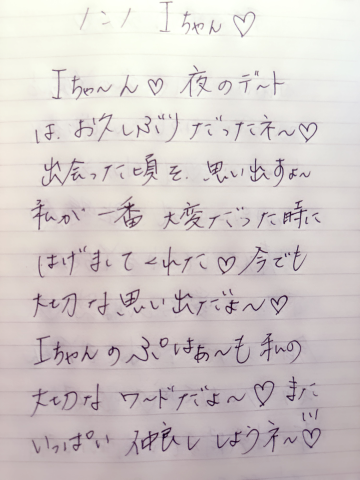 ノンノ Iちゃん♡
Iちゃ〜ん♡ 夜のデート
は、お久しぶりだったネ〜♡
出会った頃を、思い出すよ〜
私が一番 大変だった時に
はげましてくれた♡ 今でも
大切な思い出だよ〜♡
Iちゃんのぷはぁ〜も 私の
大切な ワードだよ〜♡ また
いっぱい 仲良し しようネ〜♡